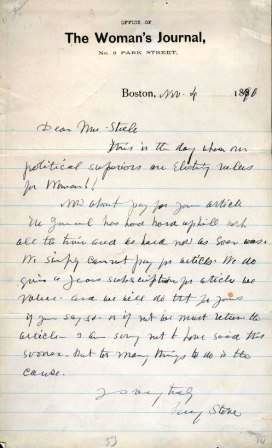 OFFICE OF
The Woman's Journal,
No. 3 PARK STREET,
Boston, Nov. 4 1886
Dear Mrs Steele
This is the day when our
political superiors are electing rulers
for Women!!
Now about pay for your article
The Journal has had hard uphill work
all the time and as hard now as ever was.
We simply cannot pay for articles. We do
give a years subscription for articles we
value. and we will do that for you
if you say so. or if not we must return the
article. I am sorry not to have said this
sooner. But too many things to do in the
cause.
yours very truly
Lucy Stone